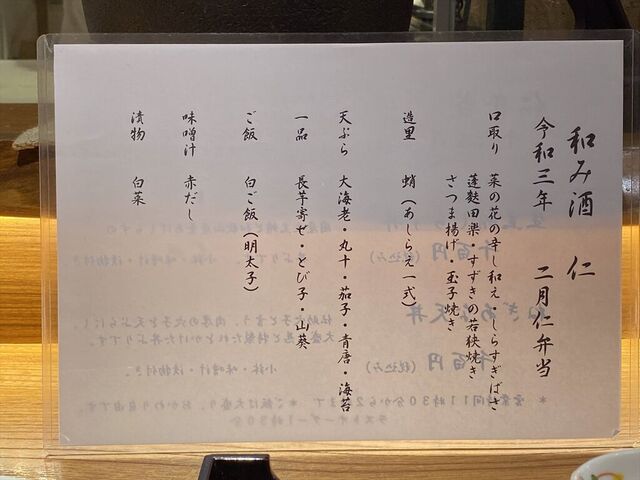 和み酒 仁
令和三年 二月仁弁当
口取り 菜の花の辛し和え・しらすぎばさ
蓬麩田楽・すずきの若狭焼き
さつま揚げ・玉子焼き
造里 蛸(あしらえ一式)
天ぷら 大海老・丸十・茄子・青唐・海苔
一品 長芋寄せ・とび子・山葵
ご飯 白ご飯(明太子)
味噌汁 赤だし
漬物 白菜